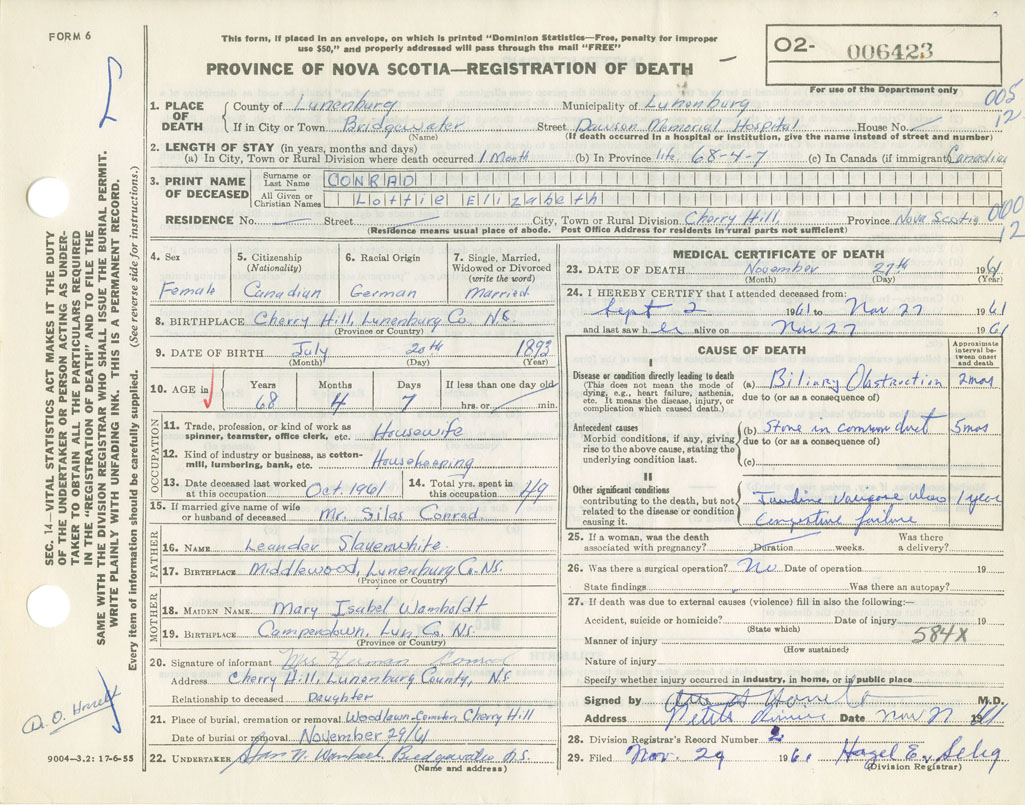 FORM 6
This form, if placed in an envelope, on which is printed "Dominion Statistics—Free, penalty for improper
use $50," and properly addressed will pass through the mail "FREE"
PROVINCE OF NOVA SCOTIA—REGISTRATION OF DEATH
02- 006423
For use of the Department only
005
12
1. PLACE OF DEATH
County of Lunenburg Municipality of Lunenburg
If in City or Town Bridgewater Street Dawson Memorial Hospital House No.
(Name) (If death occurred in a hospital or institution, give the name instead of street and number)
2. LENGTH OF STAY (in years, months and days)
(a) In City, Town or Rural Division where death occurred 1 Month (b) In Province life 68-4-7 (c) In Canada (if immigrant) Canadian
3. PRINT NAME OF DECEASED
Surname or Last Name CONRAD
All Given or Christian Names Lottie Elizabeth
RESIDENCE No. Street City, Town or Rural Division Cherry Hill Province Nova Scotia
(Residence means usual place of abode. Post Office Address for residents in rural parts not sufficient)
000
12
4. Sex
Female
5. Citizenship (Nationality)
Canadian
6. Racial Origin
German
7. Single, Married, Widowed or Divorced (write the word)
Married
8. BIRTHPLACE Cherry Hill, Lunenburg Co. N.S.
(Province or Country)
9. DATE OF BIRTH July 20th 1893
(Month) (Day) (Year)
10. AGE in
Years Months Days If less than one day old
68 4 7 hrs. or min.
OCCUPATION
11. Trade, profession, or kind of work as spinner, teamster, office clerk, etc. Housewife
12. Kind of industry or business, as cotton-mill, lumbering, bank, etc. Housekeeping
13. Date deceased last worked at this occupation Oct. 1961
14. Total yrs. spent in this occupation 49
15. If married give name of wife or husband of deceased Mr. Silas Conrad
FATHER
16. NAME Leander Slauenwhite
17. BIRTHPLACE Middlewood, Lunenburg Co. N.S.
(Province or Country)
MOTHER
18. MAIDEN NAME Mary Isabel Wamboldt
19. BIRTHPLACE Camperdown, Lun. Co. N.S.
(Province or Country)
20. Signature of informant Mrs Herman Conrad
Address Cherry Hill, Lunenburg County, N.S.
Relationship to deceased Daughter
21. Place of burial, cremation or removal Woodlawn Cherry Hill
Date of burial or removal November 29/61
22. UNDERTAKER Bridgewater N.S.
(Name and address)
MEDICAL CERTIFICATE OF DEATH
23. DATE OF DEATH November 27th 1961
(Month) (Day) (Year)
24. I HEREBY CERTIFY that I attended deceased from:
Sept 2 1961 to Nov 27 1961
and last saw h er alive on Nov 27 1961
CAUSE OF DEATH
Approximate interval between onset and death
I
Disease or condition directly leading to death
(This does not mean the mode of dying, e.g., heart failure, asthenia, etc. It means the disease, injury, or complication which caused death.)
(a) Biliary Obstruction 2 mos
due to (or as a consequence of)
Antecedent causes
Morbid conditions, if any, giving rise to the above cause, stating the underlying condition last.
(b) Stone in common duct 5 mos
due to (or as a consequence of)
(c)
II
Other significant conditions
contributing to the death, but not related to the disease or condition causing it.
1 year
failure
25. If a woman, was the death associated with pregnancy? Duration weeks. Was there a delivery?
26. Was there a surgical operation? No Date of operation 19
State findings Was there an autopsy?
27. If death was due to external causes (violence) fill in also the following:—
Accident, suicide or homicide? Date of injury 19
(State which)
Manner of injury 584X
(How sustained)
Nature of injury
Specify whether injury occurred in industry, in home, or in public place
Signed by M.D.
Address Petite Riviere Date Nov 27 1961
28. Division Registrar's Record Number 2
29. Filed Nov. 29 1961 Hazel E. Selig
(Division Registrar)
SEC. 14—VITAL STATISTICS ACT MAKES IT THE DUTY
OF THE UNDERTAKER OR PERSON ACTING AS UNDER-
TAKER TO OBTAIN ALL THE PARTICULARS REQUIRED
IN THE "REGISTRATION OF DEATH" AND TO FILE THE
SAME WITH THE DIVISION REGISTRAR WHO SHALL ISSUE THE BURIAL PERMIT.
WRITE PLAINLY WITH UNFADING INK. THIS IS A PERMANENT RECORD.
Every item of information should be carefully supplied. (See reverse side for instructions.)
9004—3.2: 17-6-55